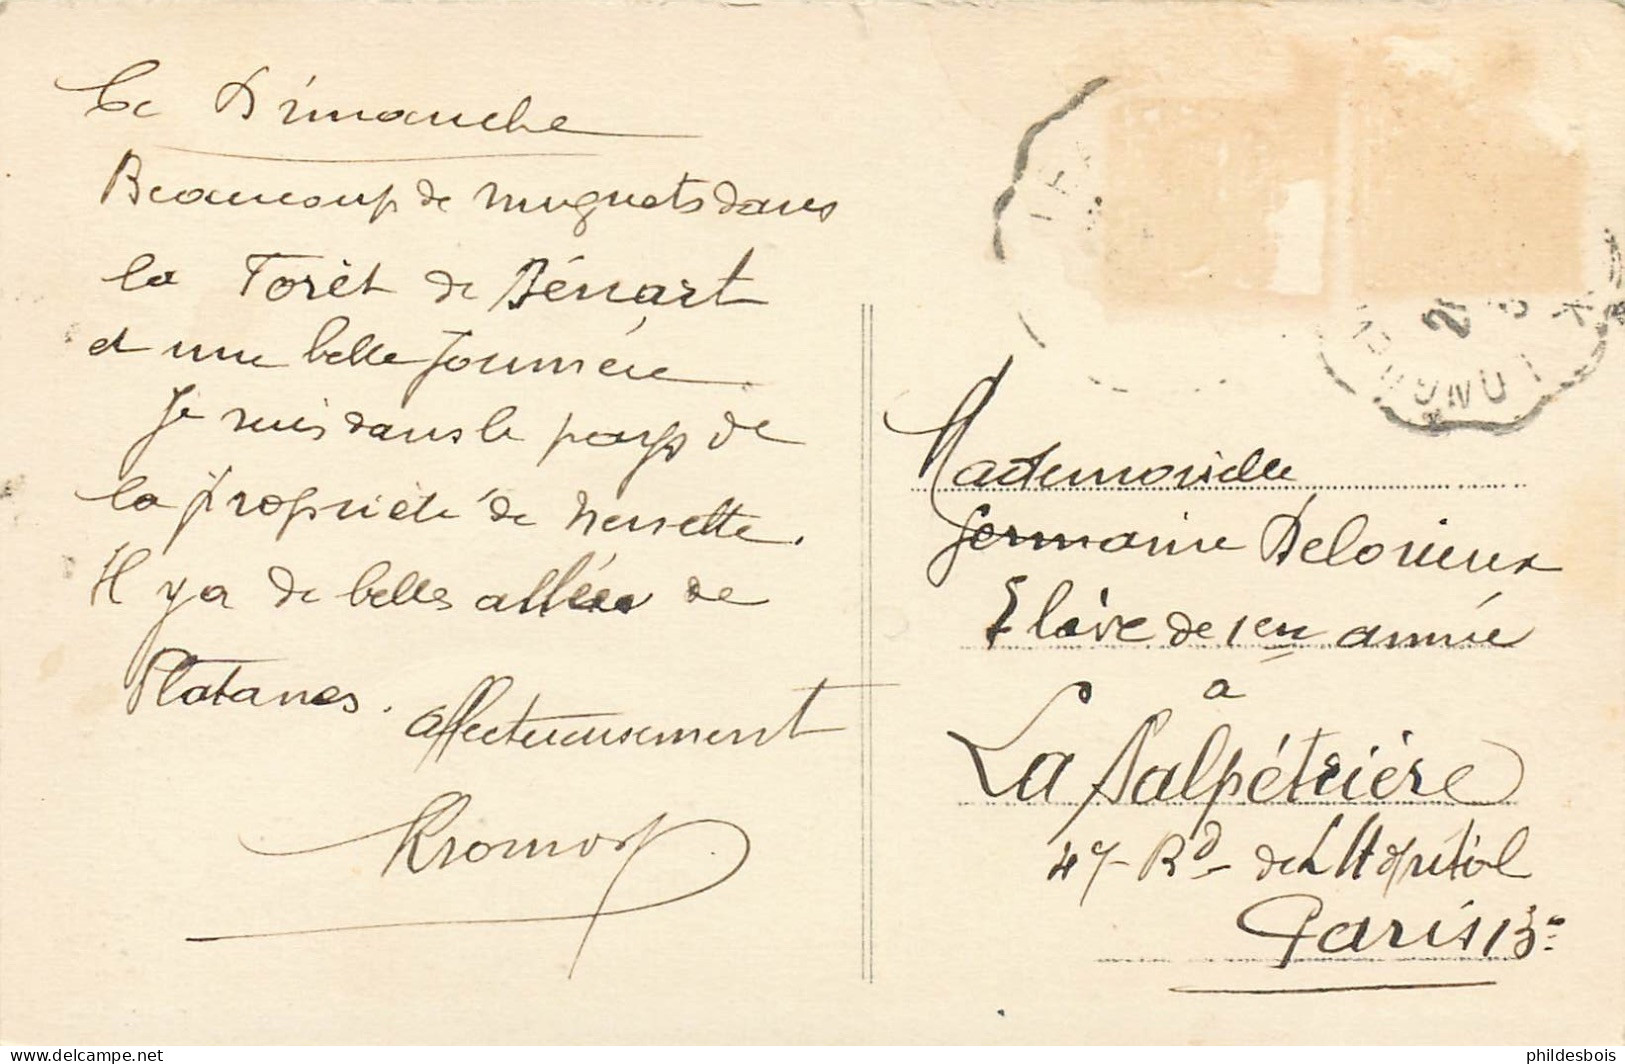 Ce Dimanche
Beaucoup de muguets dans
la Forêt de Sénart
et une belle Journée
Je suis dans le pays de
la propriété de
Il y a de belles allées de
Platanes.
affectueusement
Mademoiselle
Germaine
Elève de 1ere année
a
La Salpétrière
47 - Bd - de L'Hopital
Paris 13e
phildesbois